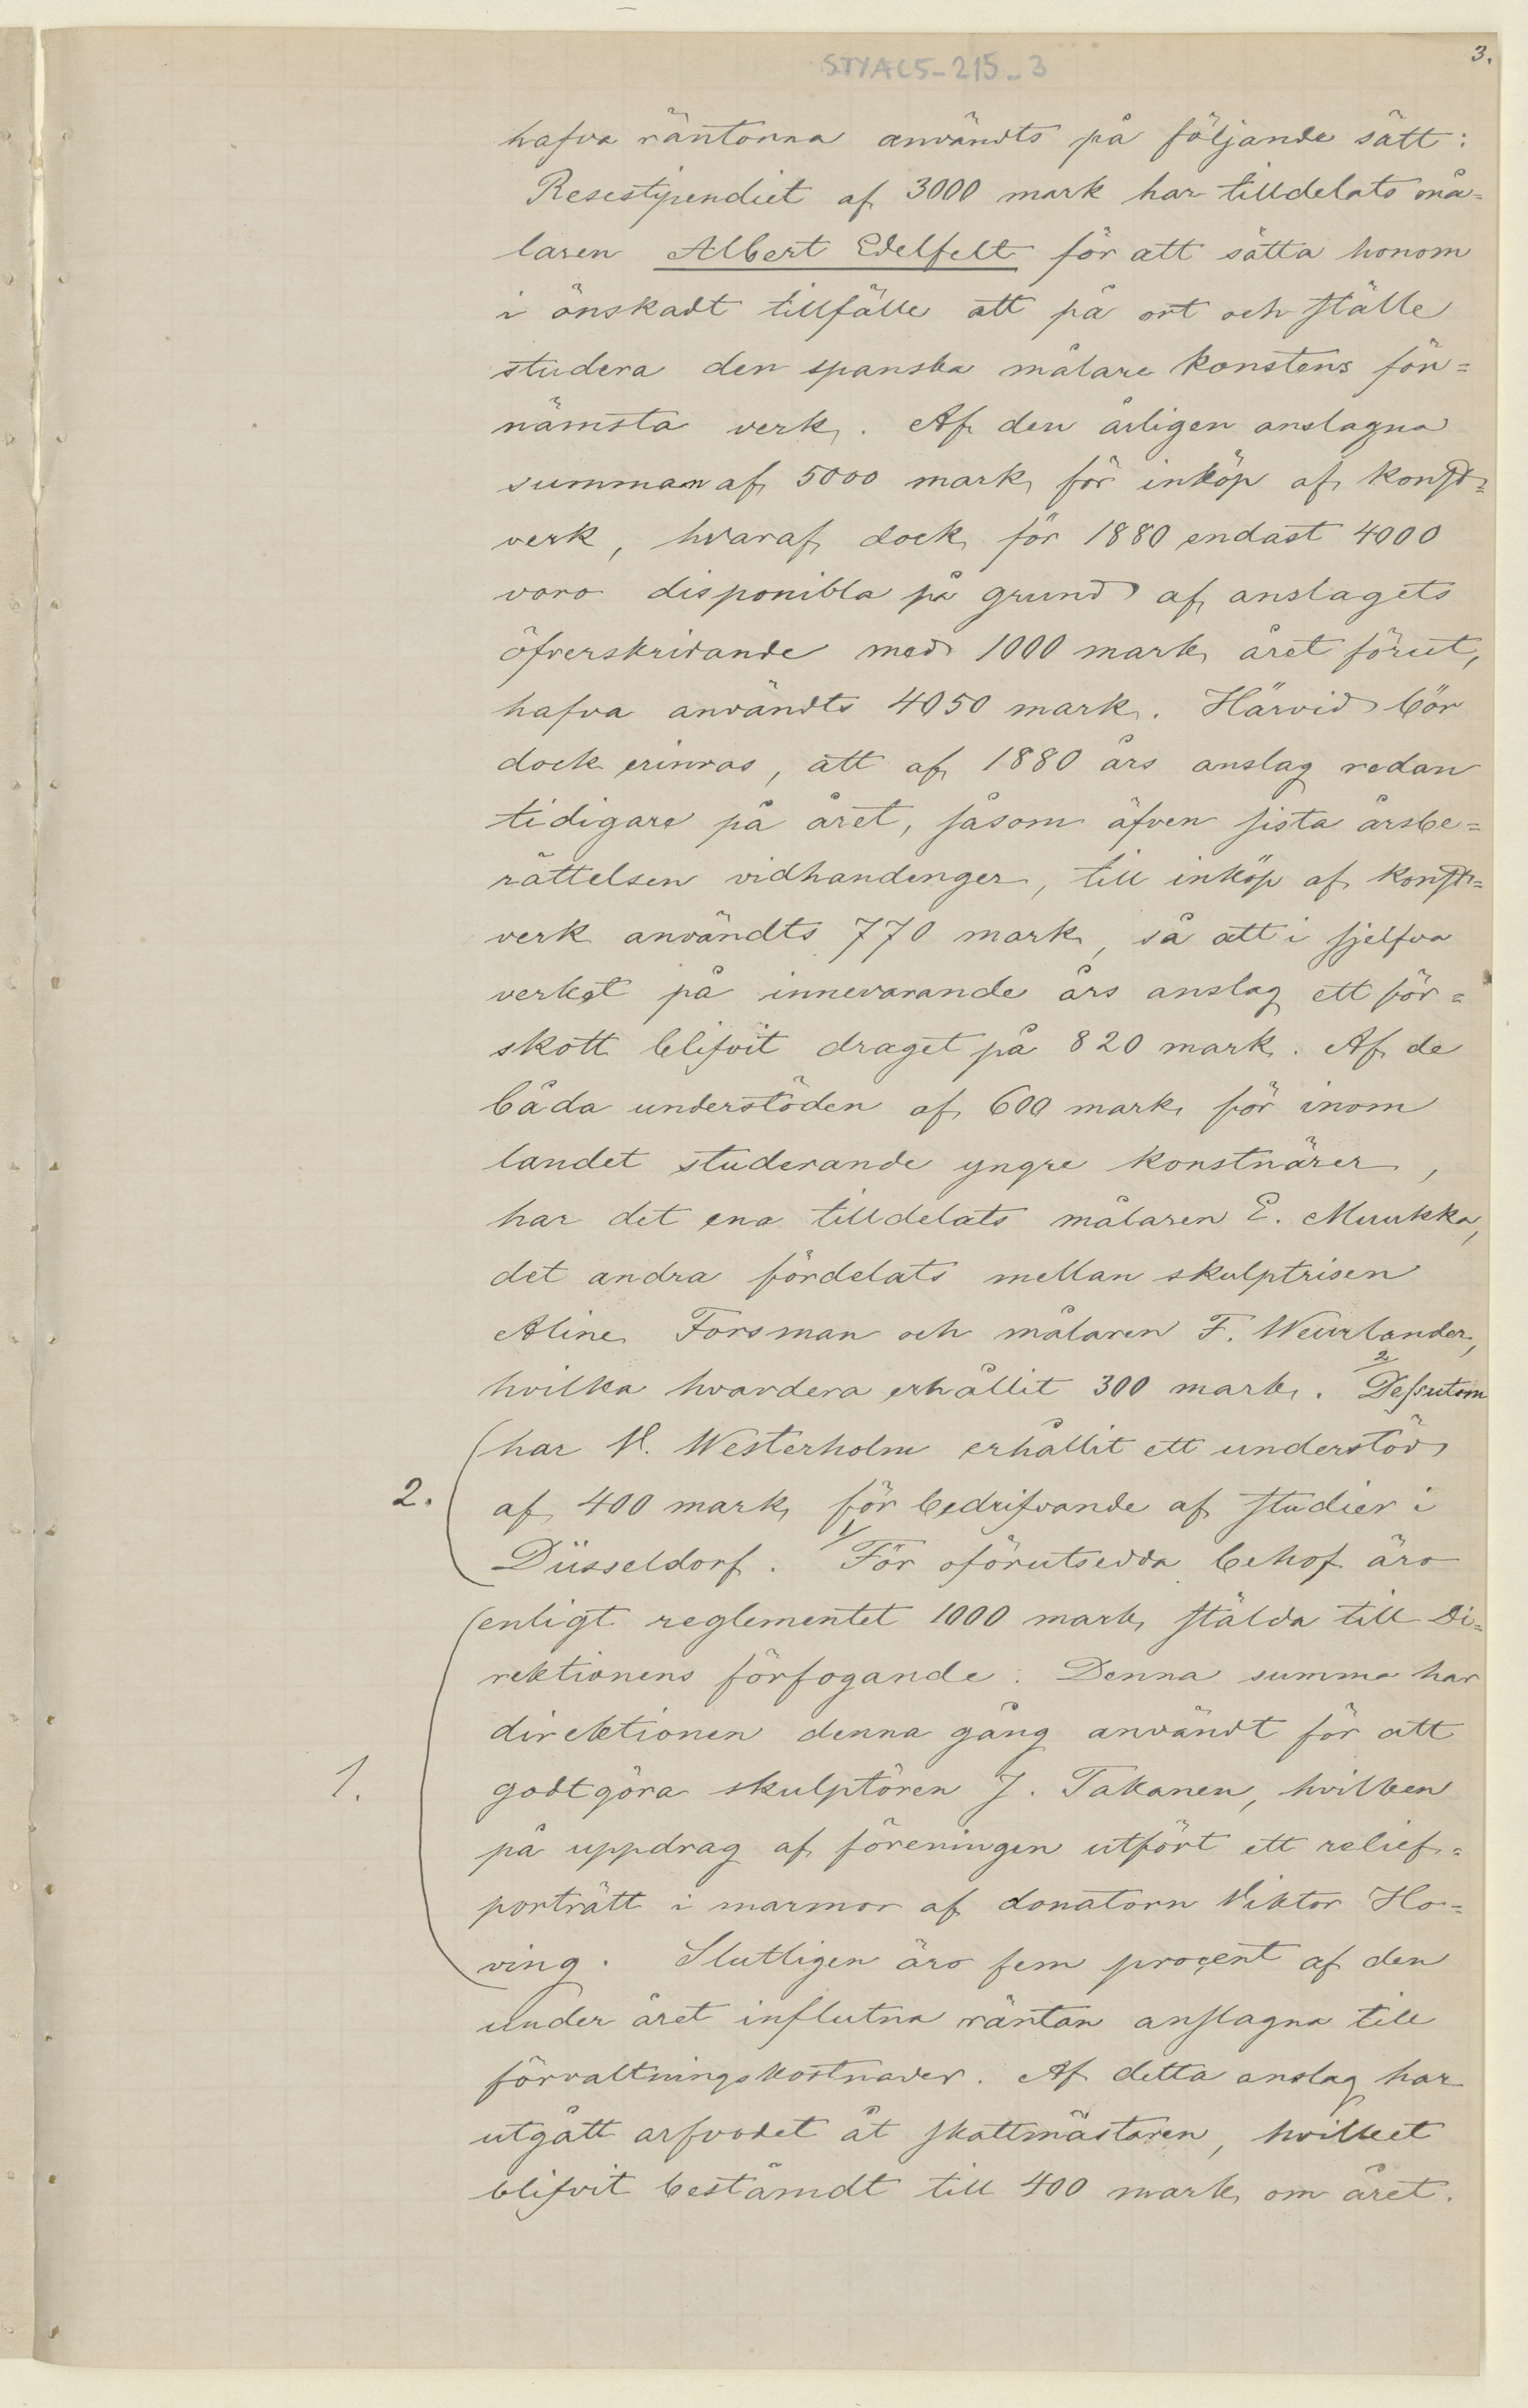 STYAC5-215-3
3.
hafva räntorna användts på följande sätt:
Resestipendiet af 3000 mark har tilldelats må=
laren Albert Edelfelt för att sätta honom
i önskadt tillfälle att på ort och ställe
studera den spanska målare konstens för=
nämsta verk. Af den årligen anslagna
summan af 5000 mark för inköp af konst=
verk, hvaraf dock för 1880 endast 4000
voro disponibla på grund af anslagets
öfverskridande med 1000 mark året förut,
hafva användts 4050 mark. Härvid bör
dock erinras, att af 1880 års anslag redan
tidigare på året, såsom äfven sista årsbe=
rättelsen vidhandenger, till inköp af konst=
verk användts 770 mark, så att i sjelfva
verket på innevarande års anslag ett för=
skott blifvit draget på 820 mark. Af de
båda understöden af 600 mark för inom
landet studerande yngre konstnärer,
har det ena tilldelats målaren E. Muukka,
det andra fördelats mellan skulptrisen
Aline Forsman och målaren F. Weurlander,
hvilka hvardera erhållit 300 mark. 2/ Dessutom
har V. Westerholm erhållit ett understöd
2. af 400 mark för bedrifvande af studier i
Düsseldorf. 1/ För oförutsedda behof äro
enligt reglementet 1000 mark stälda till Di=
rektionens förfogande. Denna summa har
direktionen denna gång användt för att
1. godtgöra skulptören J. Takanen, hvilken
på uppdrag af föreningen utfört ett relief=
porträtt i marmor af donatorn Viktor Ho=
ving. Slutligen äro fem procent af den
under året influtna räntan anslagna till
förvaltningskostnader. Af detta anslag har
utgått arfvodet åt skattmästaren, hvilket
blifvit bestämdt till 400 mark om året.